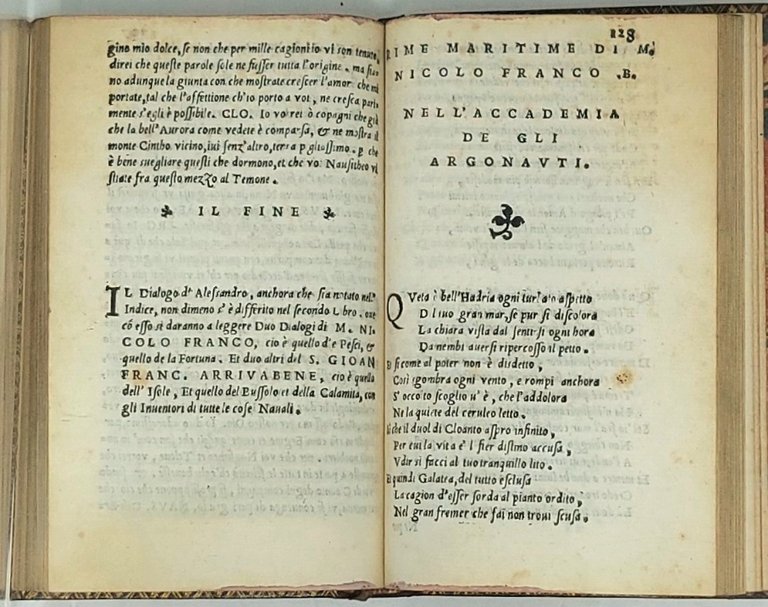 gine mio dolce, se non che per mille cagioni io vi son tenuto,
direi che queste parole sole ne fusser tutta l'origine. ma sia
no adunque la giunta con che mostrate crescer l'amor che mi
portate, tal che l'affettione ch'io porto a voi, ne cresca pari
mente s'egli è possibile. CLO. Io vorei ò cõpagni che già
che la bell'Aurora come vedete è comparsa, & ne mostra il
monte Cintho vicino, ivi senz'altro, che
è bene svegliare questi che dormono, et che voi Nausitheo vi
stiate fra questo mezzo al Temone.
IL FINE
IL Dialogo d' Alessandro, anchora che sia notato nell'
Indice, non dimeno s'è differito nel secondo Libro, ove
cõ esso si daranno a leggere Duo Dialogi di M. NI
COLO FRANCO, cio è quello d'e Pesci, &
quello de la Fortuna. Et duo altri del S. GIOAN
FRANC. ARRIVABENE, cio è quello
dell'Isole, Et quello del Bussolo et della Calamita, con
gli Inventori di tutte le cose Navali.
128
RIME MARITIME DI M.
NICOLO FRANCO .B.
NELL'ACCADEMIA
DE GLI
ARGONAVTI.
QVeta è bell'Hadria ogni turbato aspitto
Dl tuo gran mar, se pur si discolora
La chiara vista dal sentirsi ogni hora
Da nembi aversi ripercosso il petto.
Et si come al poter non è disdetto,
Così sgombra ogni vento, e rompi anchora
S'occolto scoglio v'è, che l'addolora
Ne la quiete del ceruleo letto.
Si che il duol di Cloanto aspro infinito,
Per cui la vita e'l fier distino accusa,
Vdir si facci al tuo tranquillo lito.
Et quindi Galatea, del tutto esclusa
La cagion d'esser sorda al pianto ordito,
Nel gran fremer che fai non trovi scusa.